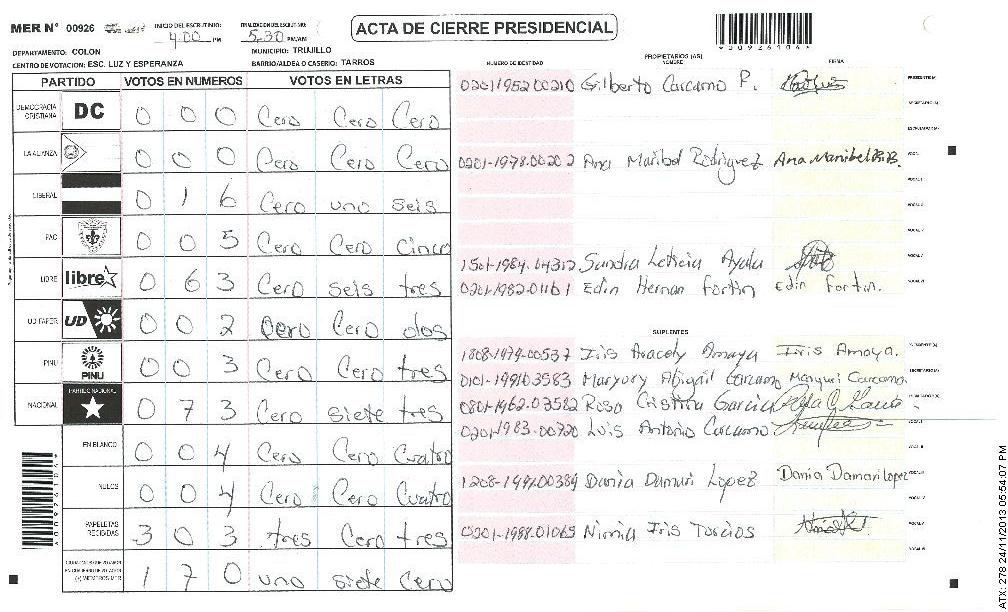 MER N° 00926 INICIO DEL ESCRUTINIO: 4:00 PM FINALIZACION DEL ESCRUTINIO: 5:30 PM/AM
ACTA DE CIERRE PRESIDENCIAL
DEPARTAMENTO: COLON MUNICIPIO: TRUJILLO
CENTRO DE VOTACION: ESC. LUZ Y ESPERANZA BARRIO/ALDEA O CASERIO: TARROS
PARTIDO VOTOS EN NUMEROS VOTOS EN LETRAS
DEMOCRACIA CRISTIANA DC 0 0 0 Cero Cero Cero
LA ALIANZA 0 0 0 Cero Cero Cero
LIBERAL 0 1 6 Cero uno seis
PAC 0 0 5 Cero Cero cinco
LIBRE libre 0 6 3 Cero seis tres
UD FAPER UD 0 0 2 Cero Cero dos
PINU PINU 0 0 3 Cero Cero tres
NACIONAL PARTIDO NACIONAL 0 7 3 Cero siete tres
EN BLANCO 0 0 4 Cero Cero Cuatro
NULOS 0 0 4 Cero Cero Cuatro
PAPELETAS RECIBIDAS 3 0 3 tres Cero tres
1 7 0 uno siete Cero
PROPIETARIOS (AS)
NUMERO DE IDENTIDAD NOMBRE FIRMA
0201195200210 Gilberto Carcamo P.
0201-1978.00202 Ana Maribel Rodriguez Ana Maribel
1501-1984-04312 Sandra Leticia Ayala
0201-1982-01161 Edin Hernan Fortin Edin Fortin.
SUPLENTES
1808-1974-00537 Iris Aracely Amaya Iris Amaya.
0101-199103583 Maryory Abigail Carcamo Maryuri Carcamo
0801-1962-03582 Rosa Cristina Garcia
0201-1983-00720 Luis Antonio Carcamo
1208-199100384 Dania Damari Lopez Dania Damari Lopez
0201-1988-01065 Nimia Iris Torcios
*00926106*
ATX: 278 24/11/2013 05:54:07 PM